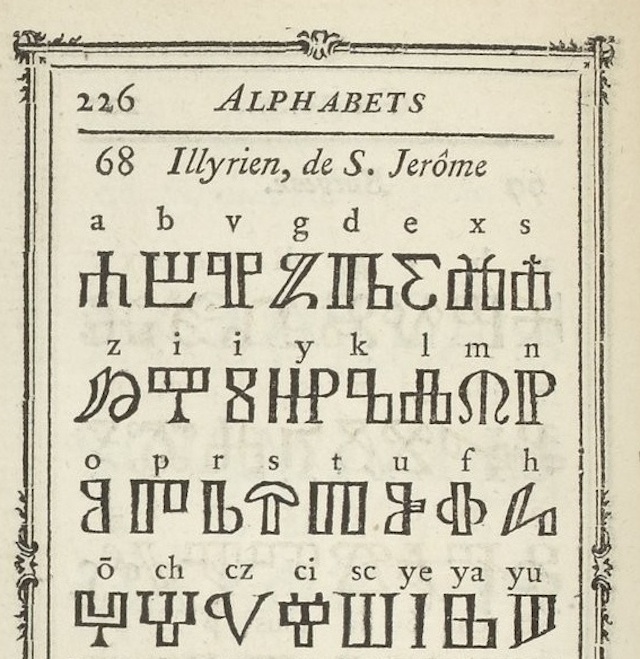 226 ALPHABETS
68 Illyrien, de S. Jerôme
a b v g d e x s
Ⰰ Ⰱ Ⰲ Ⰳ Ⰴ Ⰵ Ⰶ Ⰷ
z i i y k l m n
Ⰸ Ⰹ Ⰻ Ⰼ Ⰽ Ⰾ Ⰿ Ⱀ
o p r s t u f h
Ⱁ Ⱂ Ⱃ Ⱄ Ⱅ Ⱆ Ⱇ Ⱈ
ō ch cz ci sc ye ya yu
Ⱉ Ⱋ Ⱌ Ⱍ Ⱎ Ⱐ Ⱑ Ⱓ